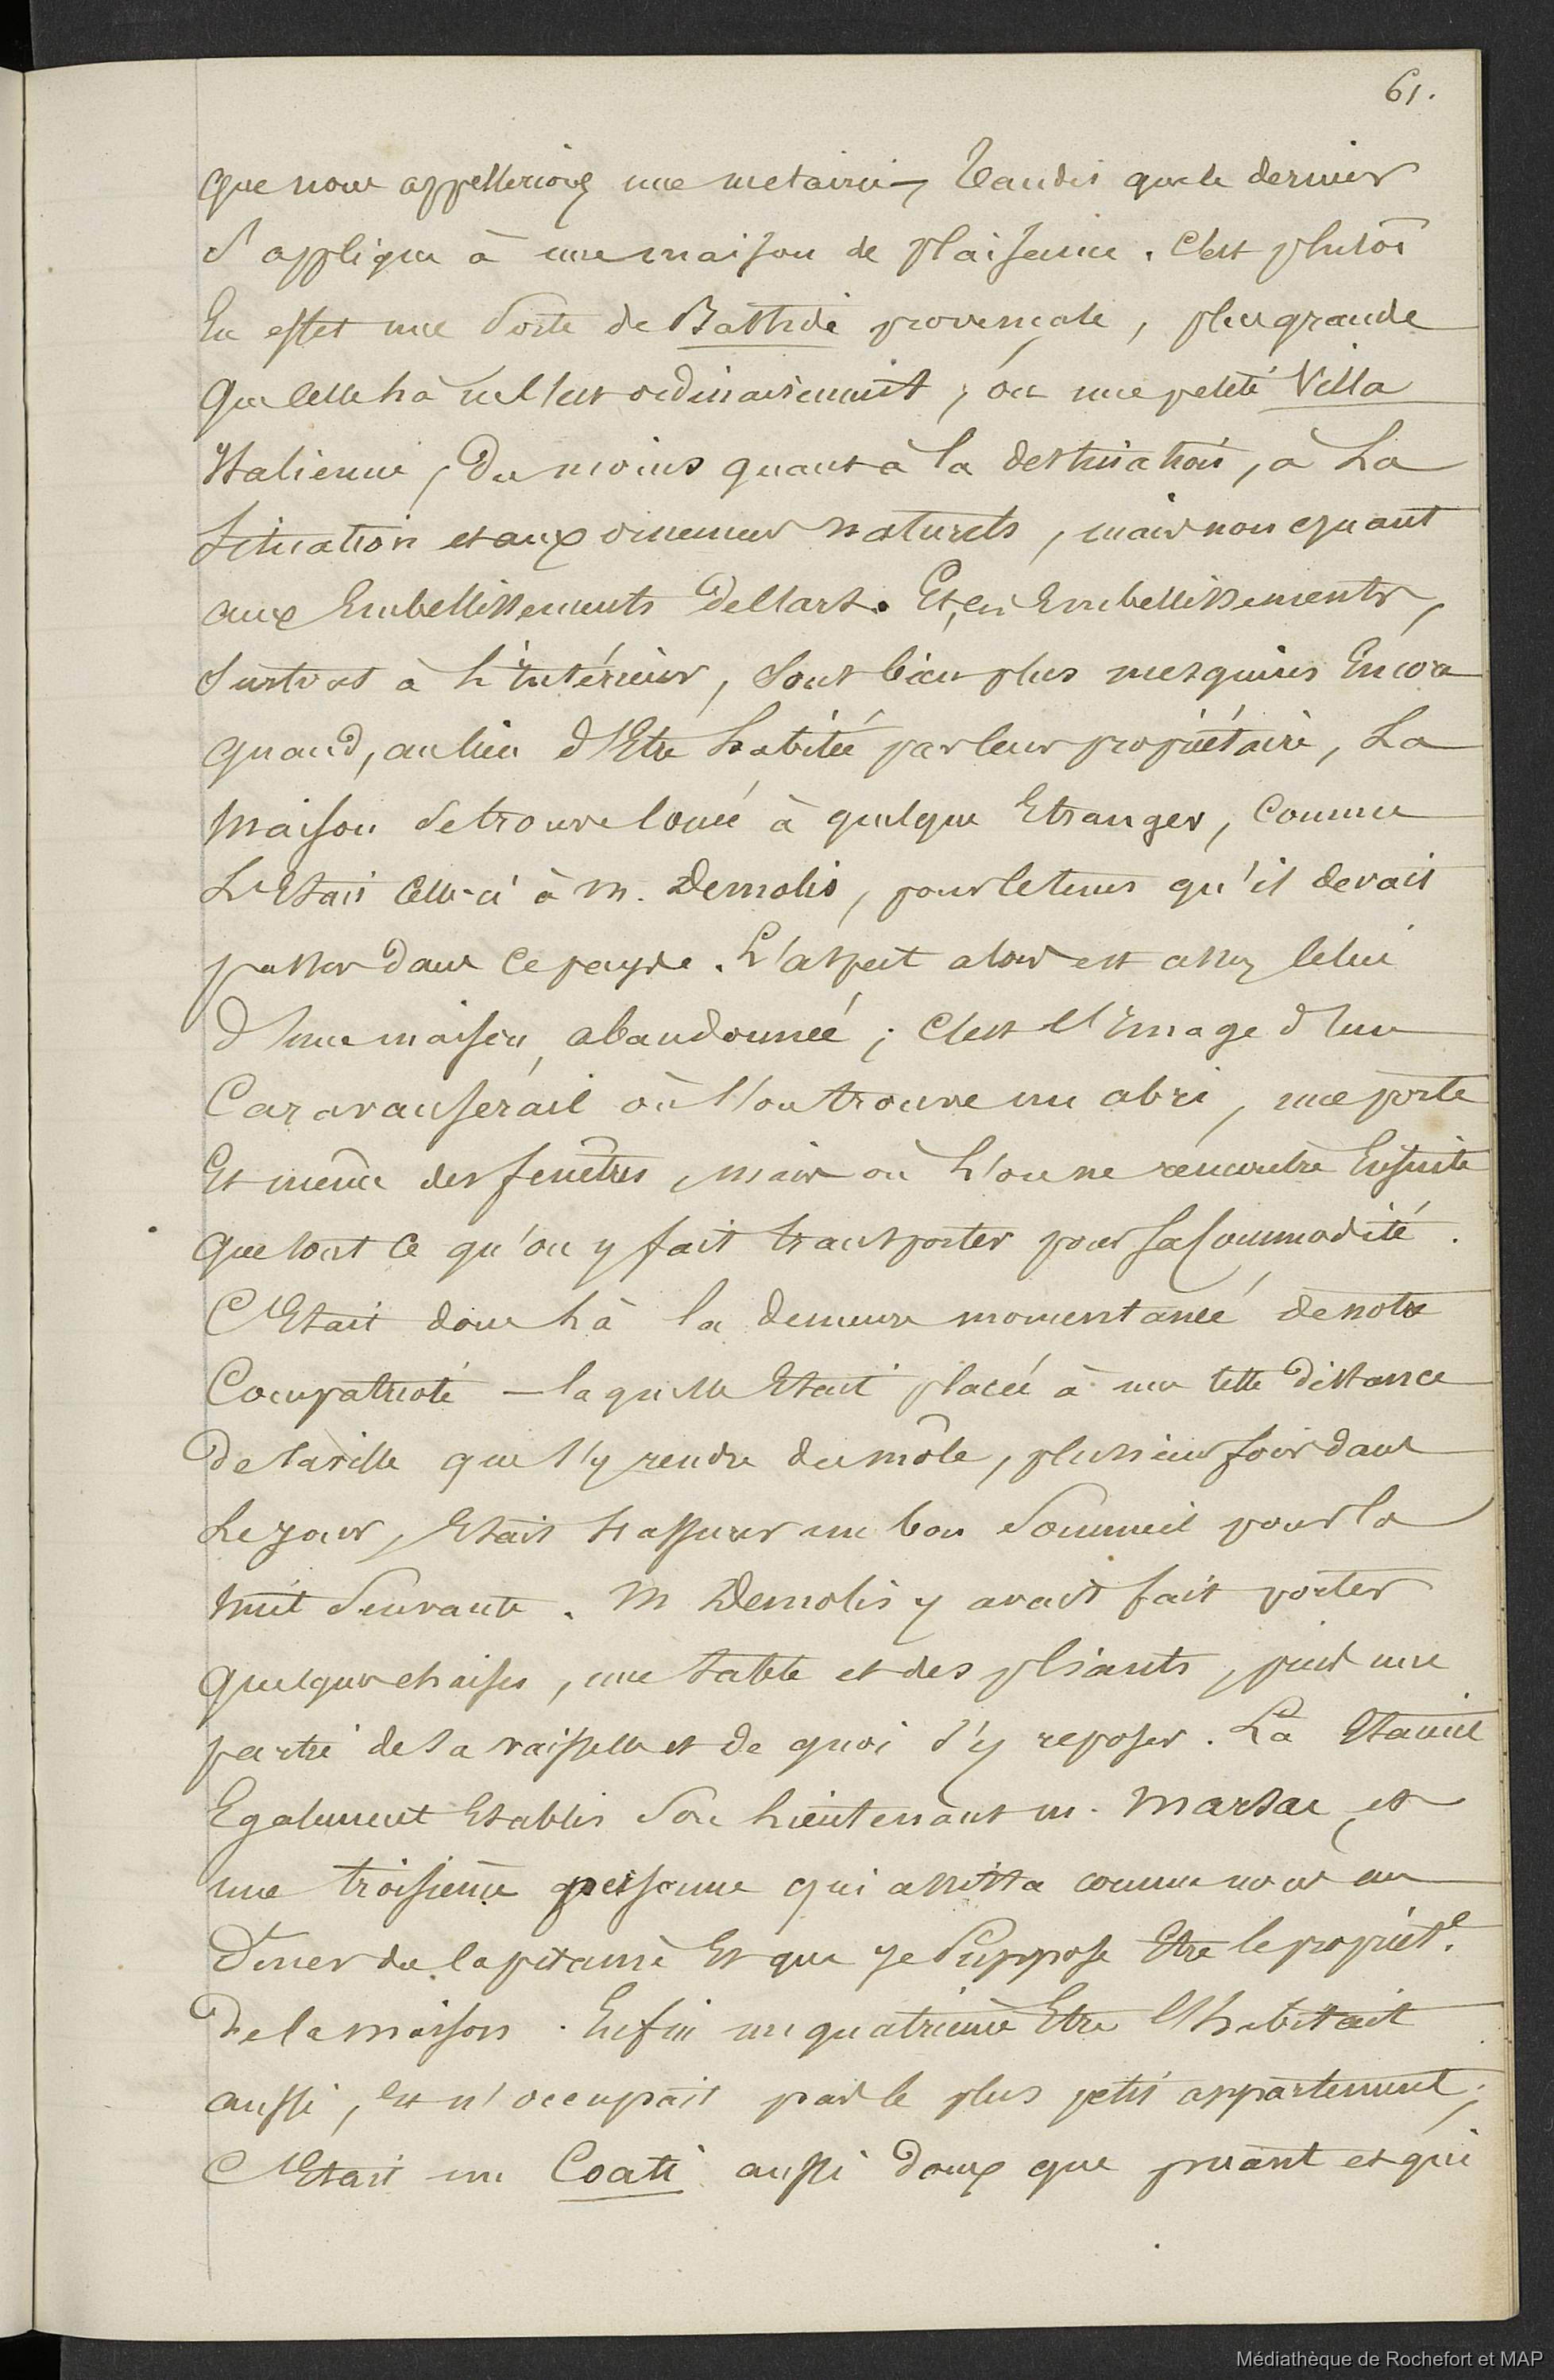 61.
que nous appellerions une metairie, tandis que le dernier
S'applique à une maison de plaisance. C'est plutôt
En effet une Sorte de Bastide provençale, plus grande
que celle là ne l'est ordinairement, ou une petite Villa
Italienne, Du moins quant à la destination, à La
Situation et aux ornemens naturels, mais non quant
aux Embellissements De l'art. Et, ces Embellissements,
Surtout à L'intérieur, Sont bien plus mesquins Encore
quand, au lieu d'Etre habitée par leur propriétaire, La
Maison Se trouve louée à quelque Etranger, Comme
L'Etait Celle-ci à M. Demolis, pour le tems qu'il devait
passer Dans Ce pays. L'aspect alors est assez Celui
D'une maison abandonnée; C'est l'Image d'un
Caravanserail où l'on trouve un abri, une porte
Et même des fenêtres, Mais où L'on ne rencontre Ensuite
que tout Ce qu'on y fait transporter pour sa Commodité.
C'Etait donc Là la demeure momentanée de notre
Compatriote — laquelle Etait placée à une telle Distance
De la ville que s'y rendre du môle, plusieurs fois dans
Le jour, Etait S'assurer un bon Sommeil pour la
Nuit Suivante. M Demolis y avait fait porter
quelques chaises, une table et des pliants, puis une
partie de Sa vaisselle et de quoi S'y reposer. Là Etaient
Egalement Etablis Son Lieutenant M. Marsac, et
une troisième personne qui assista comme nous au
Diner du Capitaine Et que Je Suppose Etre le propriét.e
De la maison. Enfin un quatrième Etre l'habitait
aussi, Et n'occupait pas le plus petit appartement;
C'Etait un Coati aussi Doux que puant et qui
Médiathèque de Rochefort et MAP